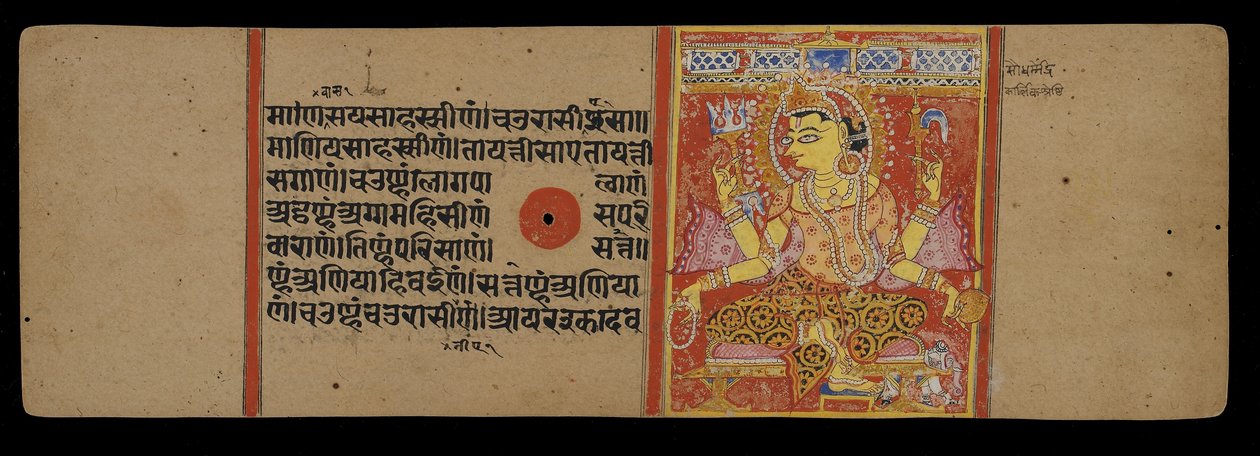 वास
माणसयसाहस्सीणं।चउरासीएसा॥
माणियसाहस्सीणं।तायत्तीसाएतायत्ती
सगाणं।चउण्हंलोगपा लाणं
अट्ठण्हंअग्गमहिसीणं सपरि
वाराणं।तिण्हंपरिसाणं। सत्त॥
ण्हंअणियाहिवईणं।सत्तण्हंअणिया
णं।चउण्हंचउरासीणं।आयरक्खदेव
सोधर्मेंद्र
कार्तिकश्रेष्टि